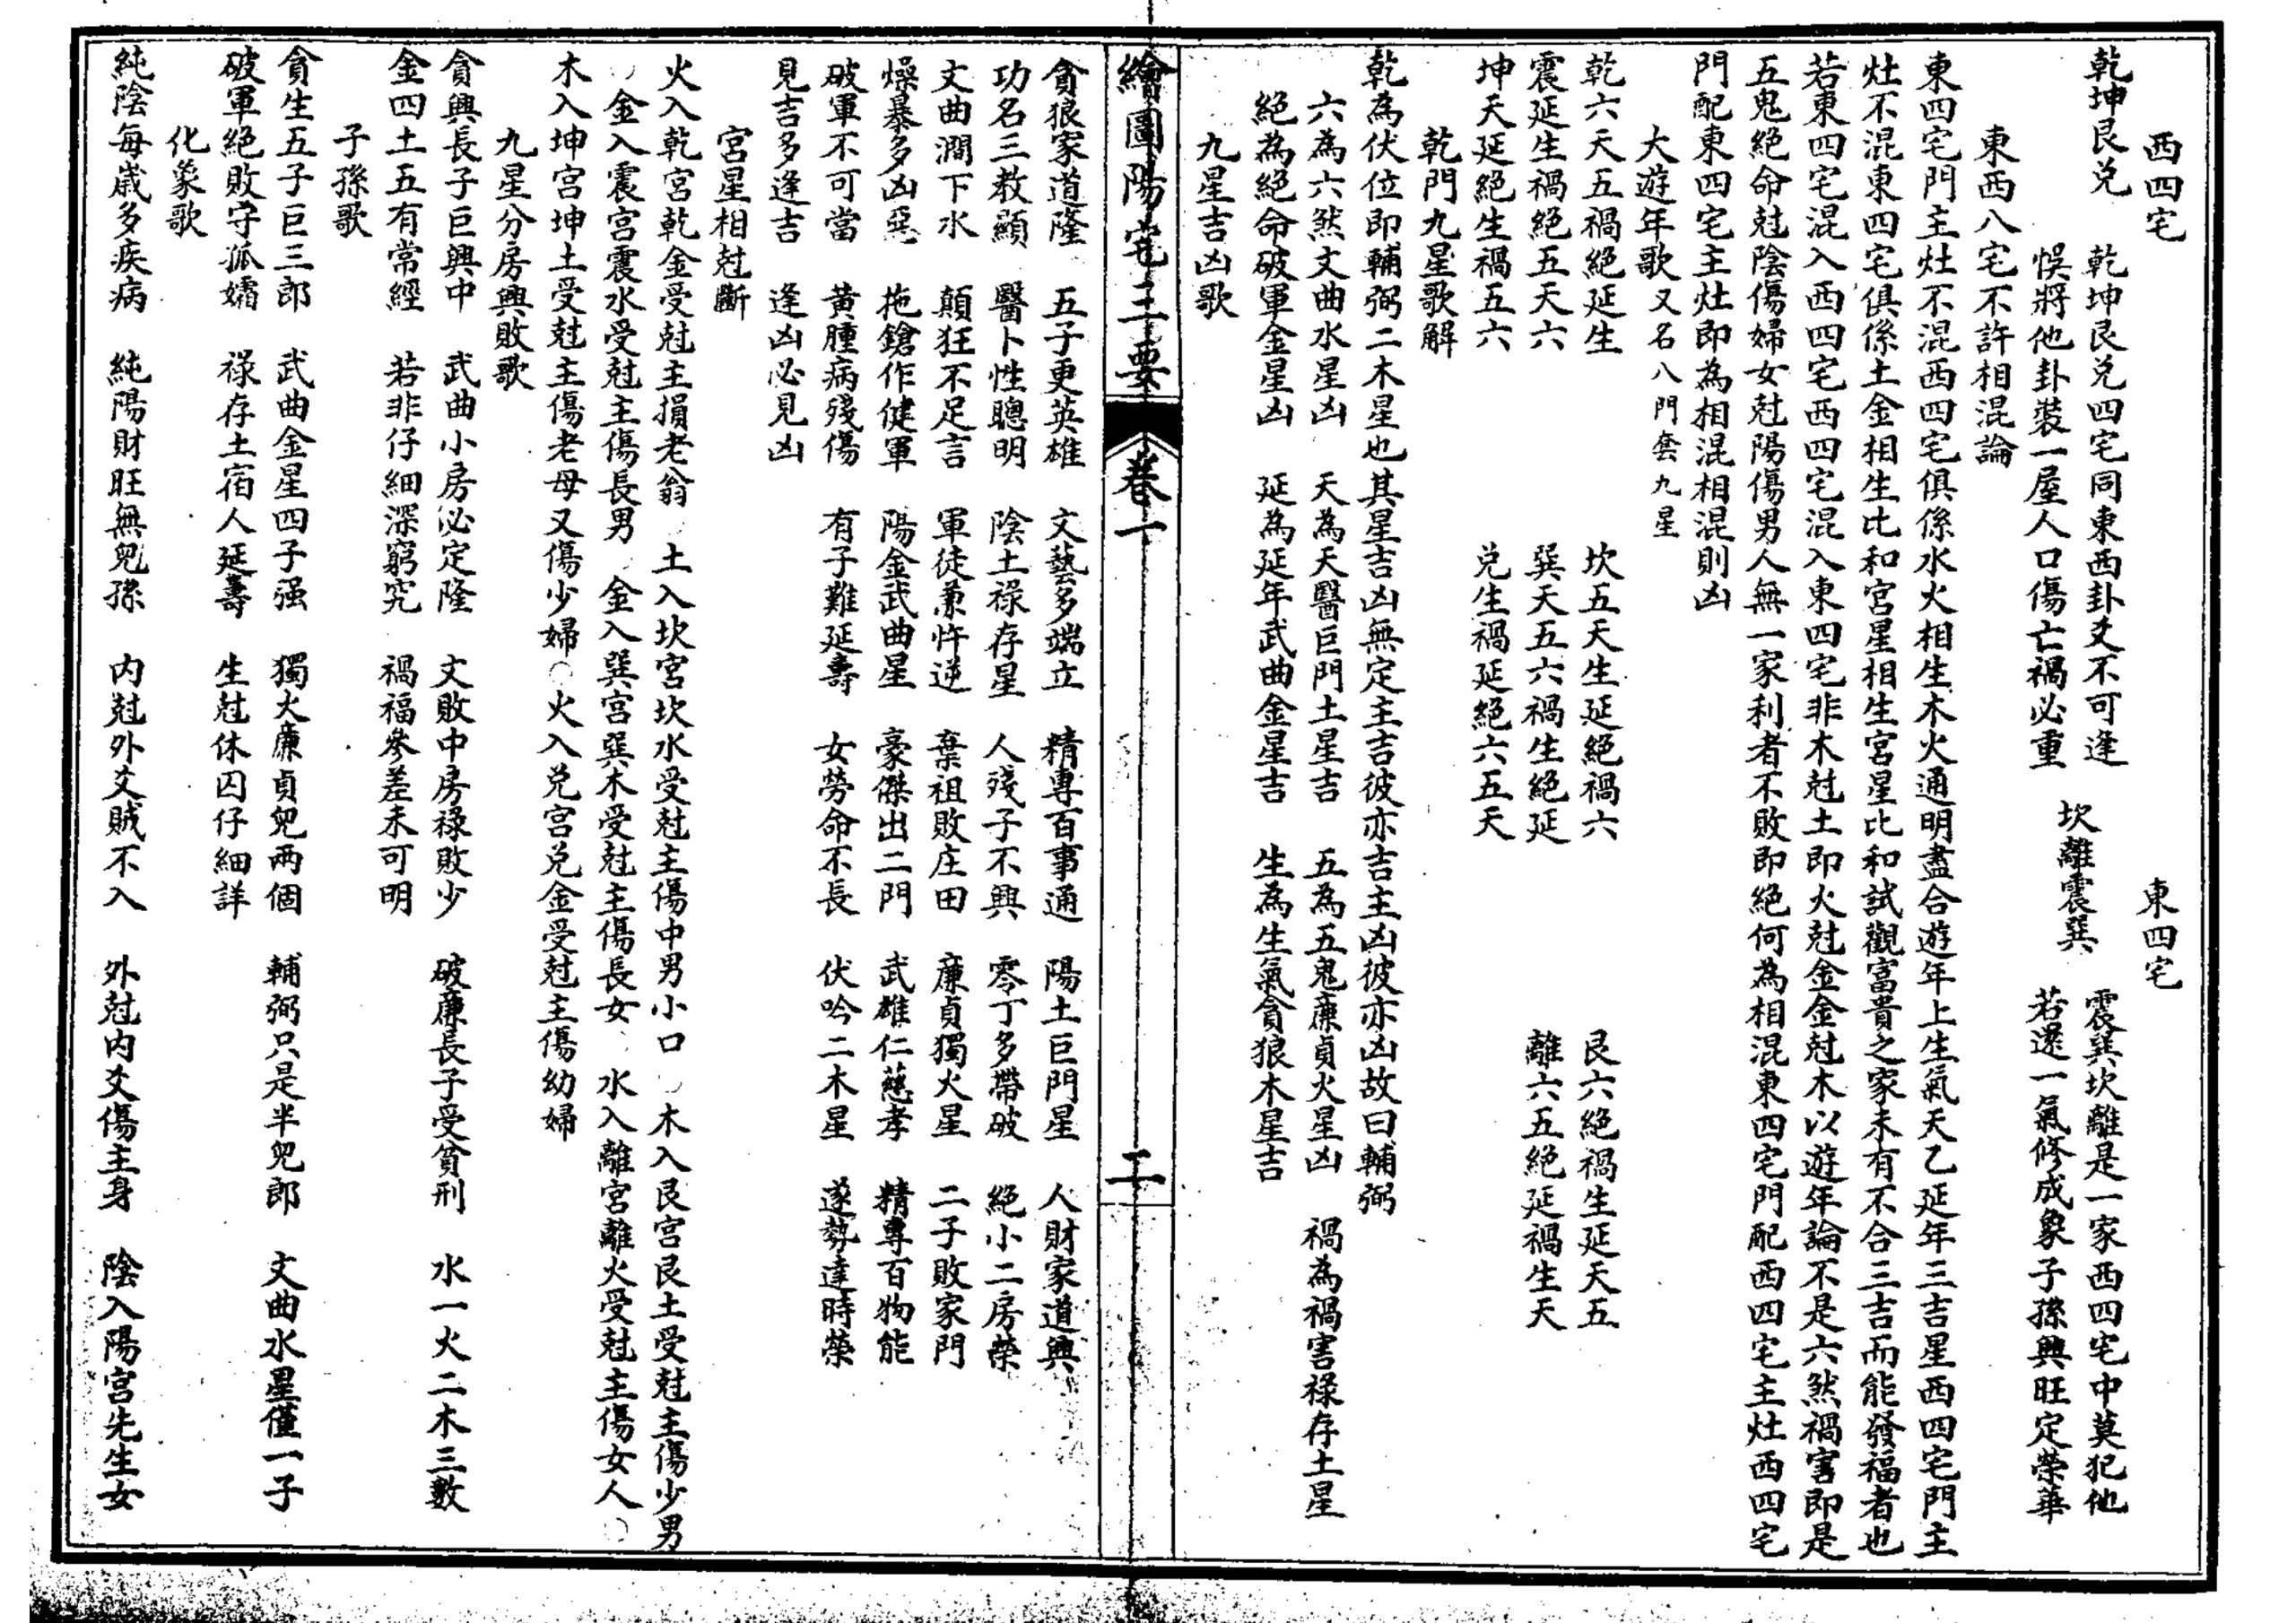 西四宅　東四宅
乾坤艮兑　乾坤艮兑四宅同東西卦爻不可逢　坎離震巽　震巽坎離是一家西四宅中莫犯他
悞將他卦裝一屋人口傷亡禍必重　若還一氣修成象子孫興旺定榮華
東西八宅不許相混論
東四宅門主灶不混西四宅俱係水火相生木火通明盡合遊年上生氣天乙延年三吉星西四宅門主
灶不混東四宅俱係土金相生比和宮星相生宮星比和試觀富貴之家未有不合三吉而能發福者也
若東四宅混入西四宅西四宅混入東四宅非木尅土即火尅金金尅木以遊年論不是六煞禍害即是
五鬼絕命尅陰傷婦女尅陽傷男人無一家利者不敗即絕何為相混東四宅門配西四宅主灶西四宅
門配東四宅主灶即為相混相混則凶
大遊年歌又名八門套九星
乾六天五禍絕延生　坎五天生延絕禍六　艮六絕禍生延天五
震延生禍絕五天六　巽天五六禍生絕延　離六五絕延禍生天
坤天延絕生禍五六　兑生禍延絕六五天
乾門九星歌解
乾為伏位即輔弼二木星也其星吉凶無定主吉彼亦吉主凶彼亦凶故曰輔弼
六為六煞文曲水星凶　天為天醫巨門土星吉　五為五鬼廉貞火星凶　禍為禍害祿存土星
絕為絕命破軍金星凶　延為延年武曲金星吉　生為生氣貪狼木星吉
九星吉凶歌
繪圖陽宅三要　卷一　二
貪狼家道隆　五子更英雄　文藝多端立　精專百事通　陽土巨門星　人財家道興
功名三教顯　醫卜性聰明　陰土祿存星　人殘子不興　零丁多帶破　絕小二房榮
文曲澗下水　顛狂不足言　軍徒兼忤逆　棄祖敗庄田　廉貞獨火星　二子敗家門
燥暴多凶惡　拖鎗作健軍　陽金武曲星　豪傑出二門　武雄仁慈孝　精專百物能
破軍不可當　黃腫病殘傷　有子難延壽　女勞命不長　伏吟二木星　遂勢達時榮
見吉多逢吉　逢凶必見凶
宮星相尅斷
火入乾宮乾金受尅主損老翁○土入坎宮坎水受尅主傷中男小口○木入艮宮艮土受尅主傷少男
○金入震宮震水受尅主傷長男○金入巽宮巽木受尅主傷長女○水入離宮離火受尅主傷女人○
木入坤宮坤土受尅主傷老母又傷少婦○火入兑宮兑金受尅主傷幼婦
九星分房興敗歌
貪興長子巨興中　武曲小房必定隆　文敗中房祿敗少　破廉長子受貧刑　水一火二木三數
金四土五有常經　若非仔細深窮究　禍福參差未可明
子孫歌
貪生五子巨三郎　武曲金星四子强　獨火廉貞兒兩個　輔弼只是半兒郎　文曲水星僅一子
破軍絕敗守孤孀　祿存土宿人延壽　生尅休囚仔細詳
化象歌
純陰每歲多疾病　純陽財旺無兒孫　內尅外爻賊不入　外尅內爻傷主身　陰入陽宮先生女